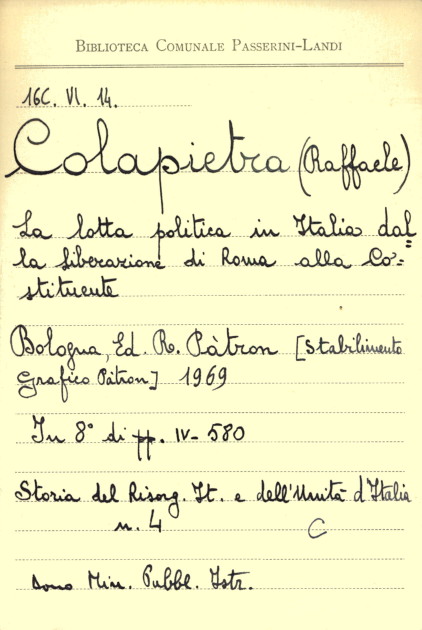 BIBLIOTECA COMUNALE PASSERINI-LANDI
16C. VI. 14.
Colapietra (Raffaele)
La lotta politica in Italia dal=
la liberazione di Roma alla Co=
stituente
Bologna, Ed. R. Pàtron [Stabilimento
Grafico Pàtron] 1969
In 8° di pp. IV-580
Storia del Risorg. It. e dell'Unità d'Italia
n. 4 C
Dono Min. Pubbl. Istr.